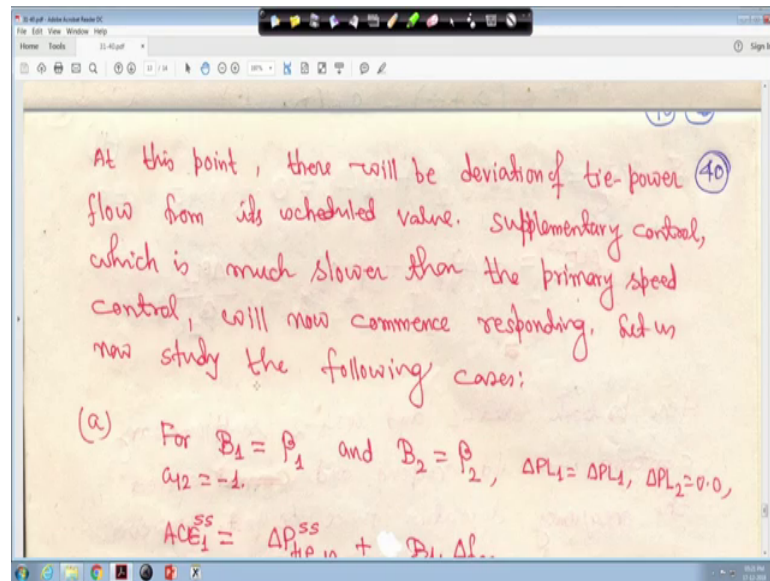 31-40.pdf - Adobe Acrobat Reader DC
File Edit View Window Help
Home Tools 31-40.pdf × Sign I
13 / 14
At this point, there will be deviation of tie-power 40
flow from its scheduled value. Supplementary control,
which is much slower than the primary speed
control, will now commence responding. Let us
now study the following cases:
(a) For B1 = β1 and B2 = β2, ΔPL1 = ΔPL1, ΔPL2 = 0.0,
a12 = -1.
ACE1^ss = ΔP^ss tie,12 + B1.Δf